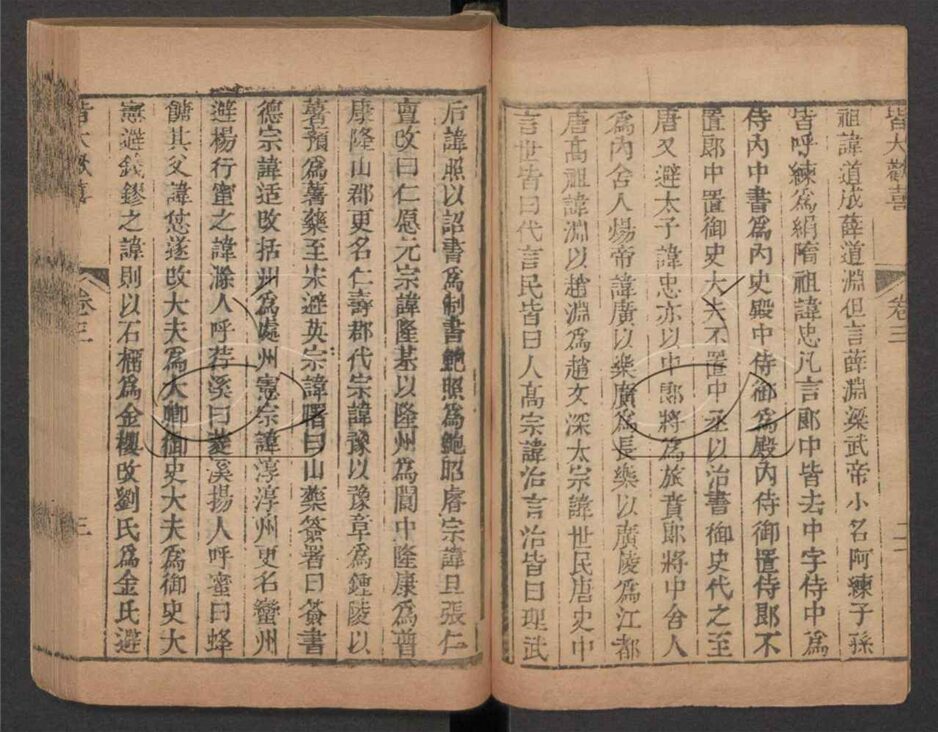 皆大歡喜
卷三
二
祖諱道成薛道淵但言薛淵梁武帝小名阿練子孫
皆呼練爲絹隋祖諱忠凡言郎中皆去中字侍中爲
侍內中書爲內史殿中侍御爲殿內侍御置侍郎不
置郎中置御史大夫不置中丞以治書御史代之至
唐又避太子諱忠亦以中郎將爲旅賁郎將中舍人
爲內舍人煬帝諱廣以樂廣爲長樂以廣陵爲江都
唐高祖諱淵以趙淵爲趙文深太宗諱世民唐史中
言世皆曰代言民皆曰人高宗諱治言治皆曰理武
后諱照以詔書爲制書鮑照爲鮑昭睿宗諱旦張仁
亶改曰仁愿元宗諱隆基以隆州爲閬中隆康爲普
康隆山郡更名仁壽郡代宗諱豫以豫章爲鍾陵以
薯預爲薯藥至宋避英宗諱曙曰山藥簽署曰簽書
德宗諱适改括州爲處州憲宗諱淳淳州更名蠻州
避楊行蜜之諱滁人呼荇溪曰菱溪揚人呼蜜曰蜂
餹其父諱怤遂改大夫爲大卿御史大夫爲御史大
憲避錢鏐之諱則以石榴爲金櫻改劉氏爲金氏避
皆大歡喜
卷三
三